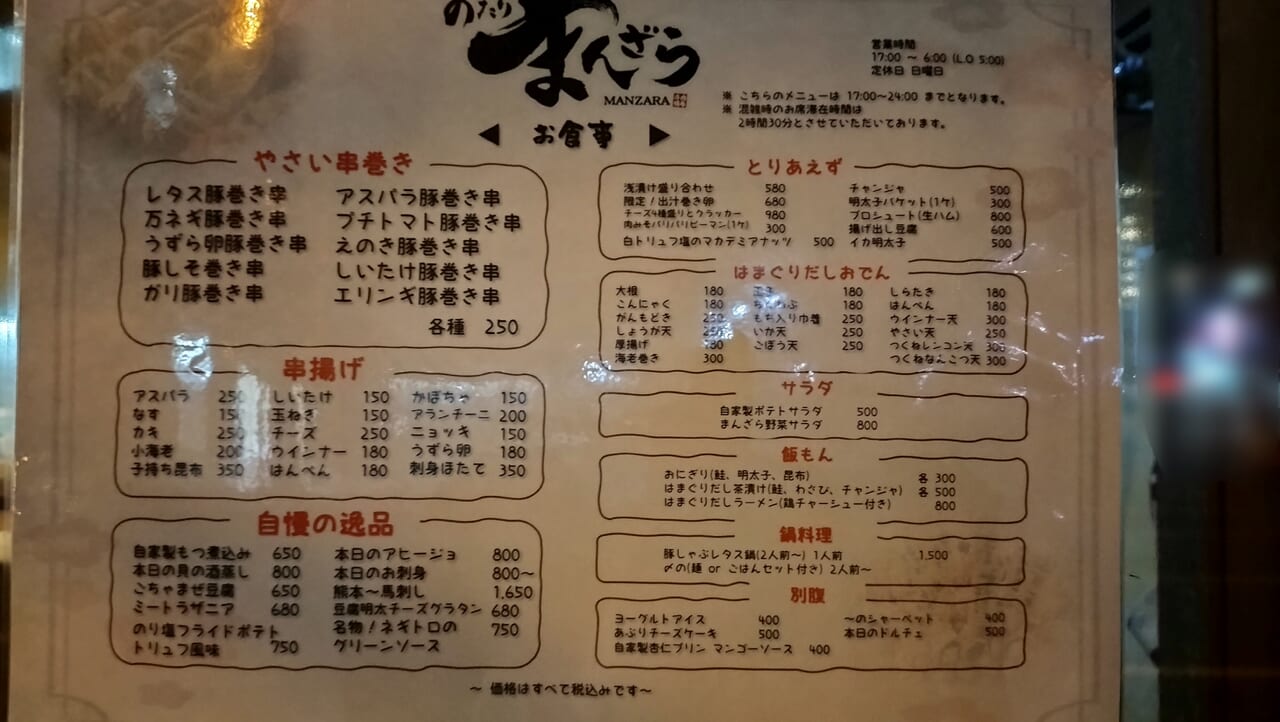 のたり
まんざら
MANZARA
営業時間
17:00 ~ 6:00 (L.O 5:00)
定休日 日曜日
※ こちらのメニューは 17:00~24:00 までとなります。
※ 混雑時のお席滞在時間は
2時間30分とさせていただいております。
◀ お食事 ▶
やさい串巻き
レタス豚巻き串 アスパラ豚巻き串
万ネギ豚巻き串 プチトマト豚巻き串
うずら卵豚巻き串 えのき豚巻き串
豚しそ巻き串 しいたけ豚巻き串
ガリ豚巻き串 エリンギ豚巻き串
各種 250
串揚げ
アスパラ 250 しいたけ 150 かぼちゃ 150
なす 150 玉ねぎ 150 アランチーニ 200
カキ 250 チーズ 250 ニョッキ 150
小海老 200 ウインナー 180 うずら卵 180
子持ち昆布 350 はんぺん 180 刺身ほたて 350
自慢の逸品
自家製もつ煮込み 650 本日のアヒージョ 800
本日の貝の酒蒸し 800 本日のお刺身 800~
ごちゃまぜ豆腐 650 熊本~馬刺し 1,650
ミートラザニア 680 豆腐明太チーズグラタン 680
のり塩フライドポテト 名物!ネギトロの 750
トリュフ風味 750 グリーンソース
とりあえず
浅漬け盛り合わせ 580 チャンジャ 500
限定!出汁巻き卵 680 明太子バケット(1ケ) 300
チーズ4種盛りとクラッカー 980 プロシュート(生ハム) 800
肉みそパリパリピーマン(1ケ) 300 揚げ出し豆腐 600
白トリュフ塩のマカデミアナッツ 500 イカ明太子 500
はまぐりだしおでん
大根 180 玉子 180 しらたき 180
こんにゃく 180 ちくわぶ 180 はんぺん 180
がんもどき 250 もち入り巾着 250 ウインナー天 300
しょうが天 250 いか天 250 やさい天 250
厚揚げ 180 ごぼう天 250 つくねレンコン天 300
海老巻き 300 つくねなんこつ天 300
サラダ
自家製ポテトサラダ 500
まんざら野菜サラダ 800
飯もん
おにぎり(鮭、明太子、昆布) 各 300
はまぐりだし茶漬け(鮭、わさび、チャンジャ) 各 500
はまぐりだしラーメン(鶏チャーシュー付き) 800
鍋料理
豚しゃぶレタス鍋(2人前~) 1人前 1,500
〆の(麺 or ごはんセット付き) 2人前~
別腹
ヨーグルトアイス 400 ~のシャーベット 400
あぶりチーズケーキ 500 本日のドルチェ 500
自家製杏仁プリン マンゴーソース 400
~ 価格はすべて税込みです~